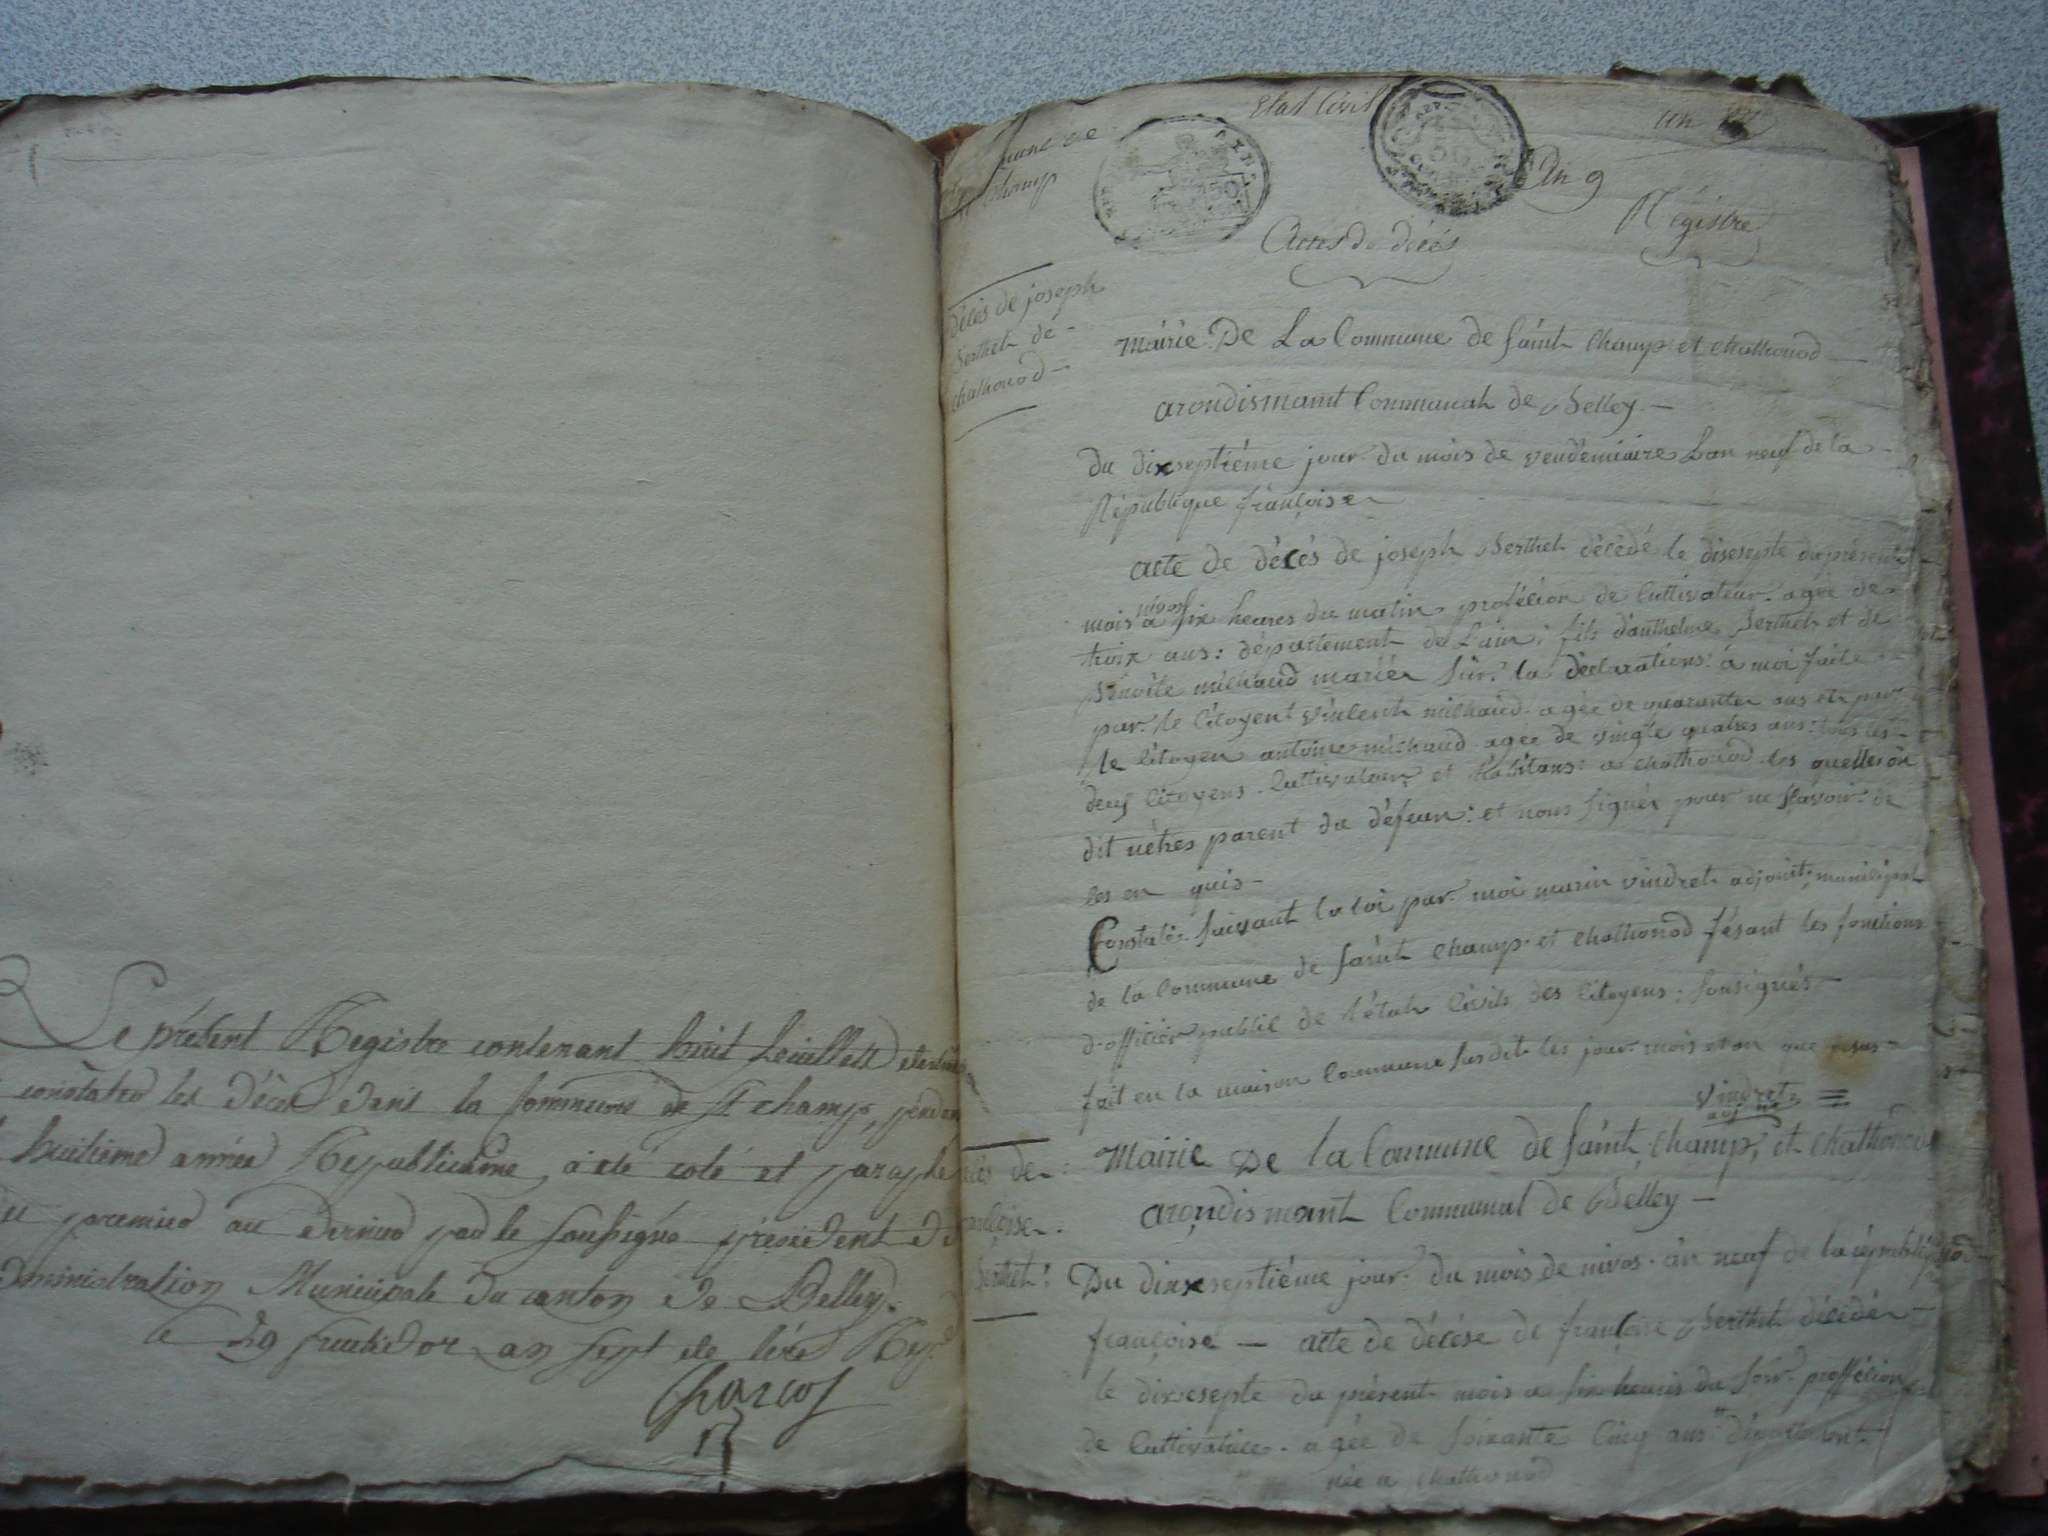 Le présent Registre contenant huit feuillets
constater les décès dans la commune de St champ, pendan
huitieme année Republicaine, a été coté et paraphé
premier au dernier par le soussigné président de
dministration Municipale du canton de Belley.
le 29 fructidor an sept de l'ère Rep.e
Charcot
Etat Civil
champ
An 9
Régistre
Actes de décés
décés de joseph
Berthet de
chathonod
Mairie De La Commune de saint Champ et chathonod
arondismamt Communah de Belley
du dixseptiéme jour du mois de vendémiaire Lan neuf de la
République françoise
acte de décés de joseph Berthet décédé le disesepte du présent
nivos
mois a six heures du matin profécion de Cultivateur agée de
troix ans : département de Lain : fils danthelme Berthet et de
Benoite michaud mariér sur la déclarations a moi faite
par le Citoyent vincent michaud agée de quarante ans et par
le Citoyen antoine michaud agée de vingte quatres ans : tous les
deux Citoyens Cultivateur et habitans a chathonod les quelles on
dit nètres parent du défeun : et nons signér pour ne sçavoir de
les en quis
Constaté suivant la loi par moi marin vindret adjoint municipal
de la Commune de saint Champ et chathonod fésant les fonctions
d'officier public de létat Civils des Citoyens : sousignés
fait en la maison Commune susdit les jour mois et an que desus
vindret
adj
Mairie De la Commune de saint Champ, et chathonod
arondismant Communal de Belley
cés de
ançoise
Berthet
Du dixxseptiéme jour du mois de nivos an neuf de la républiq
françoise — acte de décése de françoise Berthet décédér
le dixesepte du présent mois a six heures du soir proffécion
de Cultivatrice agée de soixante Cinq ans département
née a chathonod